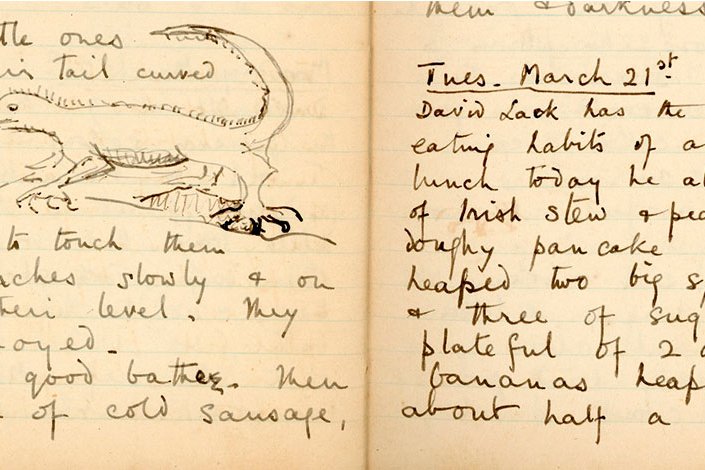 ttle ones
tail curved
to touch them
ches slowly & on
their level. They
oyed.
good bathes. Then
of cold sausage,
them & darkness
Tues. March 21st
David Lack has the
eating habits of a
lunch today he a
of Irish stew & pe
doughy pancake
heaped two big s
& three of sug
plateful of 2
bananas heap
about half a